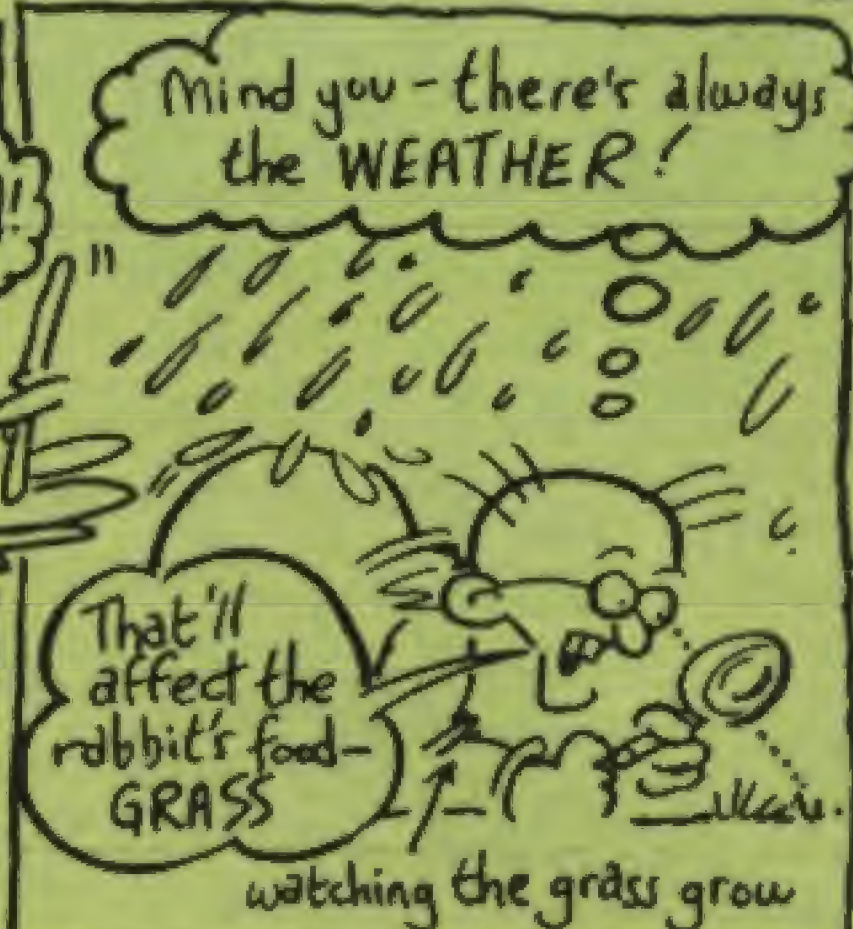 Mind you - there's always
the WEATHER!
That'll
affect the
rabbit's food-
GRASS
watching the grass grow